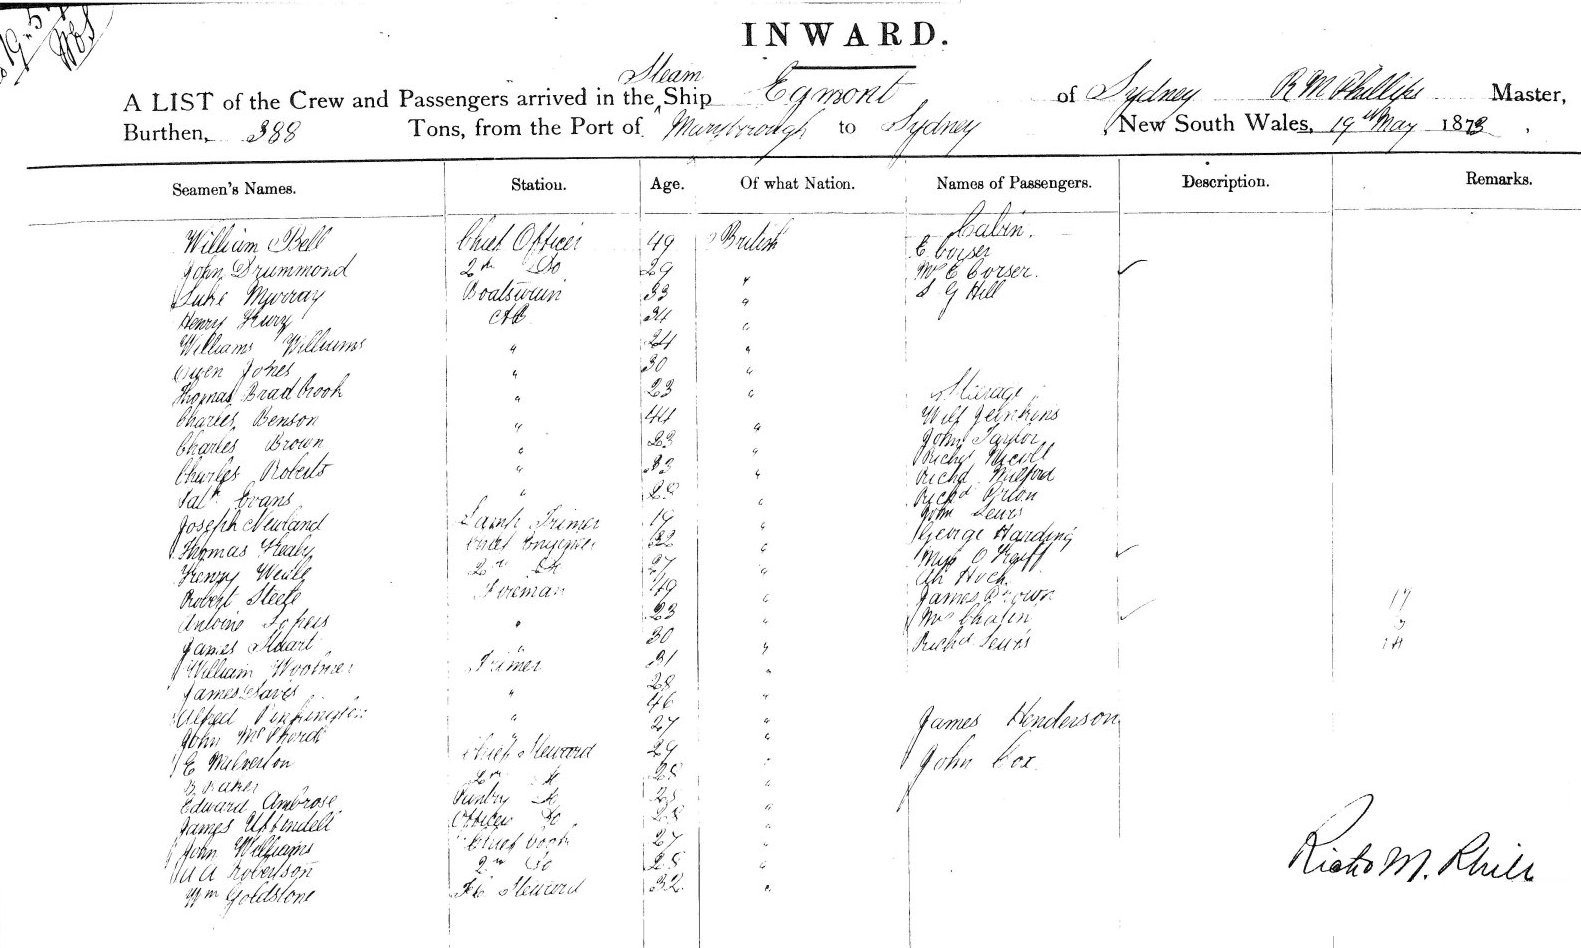 INWARD.
Steam
A LIST of the Crew and Passengers arrived in the Ship Egmont of Sydney R M Phillips Master,
Burthen, 388 Tons, from the Port of Maryborough to Sydney New South Wales, 19th May 1873,
Seamen's Names. Station. Age. Of what Nation. Names of Passengers. Description. Remarks.
Cabin.
William Bell Chief Officer 49 British E Corser
John Drummond 2nd Do 29 " Mrs E Corser.
Luke Murray Boatswain 33 " S G Hill
Henry AB 34 "
Williams Williams " 24 "
Owen Jones " 30 "
Thomas Bradbrook " 23 " Steerage
Charles Benson " 44 " Jenkins
Charles Brown " 23 " John Taylor
Charles Roberts " 33 " Richd Milford
Evans " 28 " Richd
Joseph Newland Lamp Trimer 19 " John Lewis
Thomas Healy Chief Engineer 32 " George Harding
Henry 2nd Do 27 " Miss
Robert Steele Foreman 49 " Ah
Antoine " 23 " James Brown 17
James Stuart " 30 " Mrs 3
William Trimer 31 " Richd Lewis 14
James " 28 "
Alfred " 46 "
John " 27 " James Henderson
E Wolverton Chief Steward 29 " John Cox.
B Baker 2nd Do 28 "
Edward Ambrose Pantry Do 25 "
James Uffindell Officers Do 28 "
John Williams Chief Cook 27 "
Robertson 2nd Do 28 "
Wm Goldstone Steward 32 "
Richd M. Phill